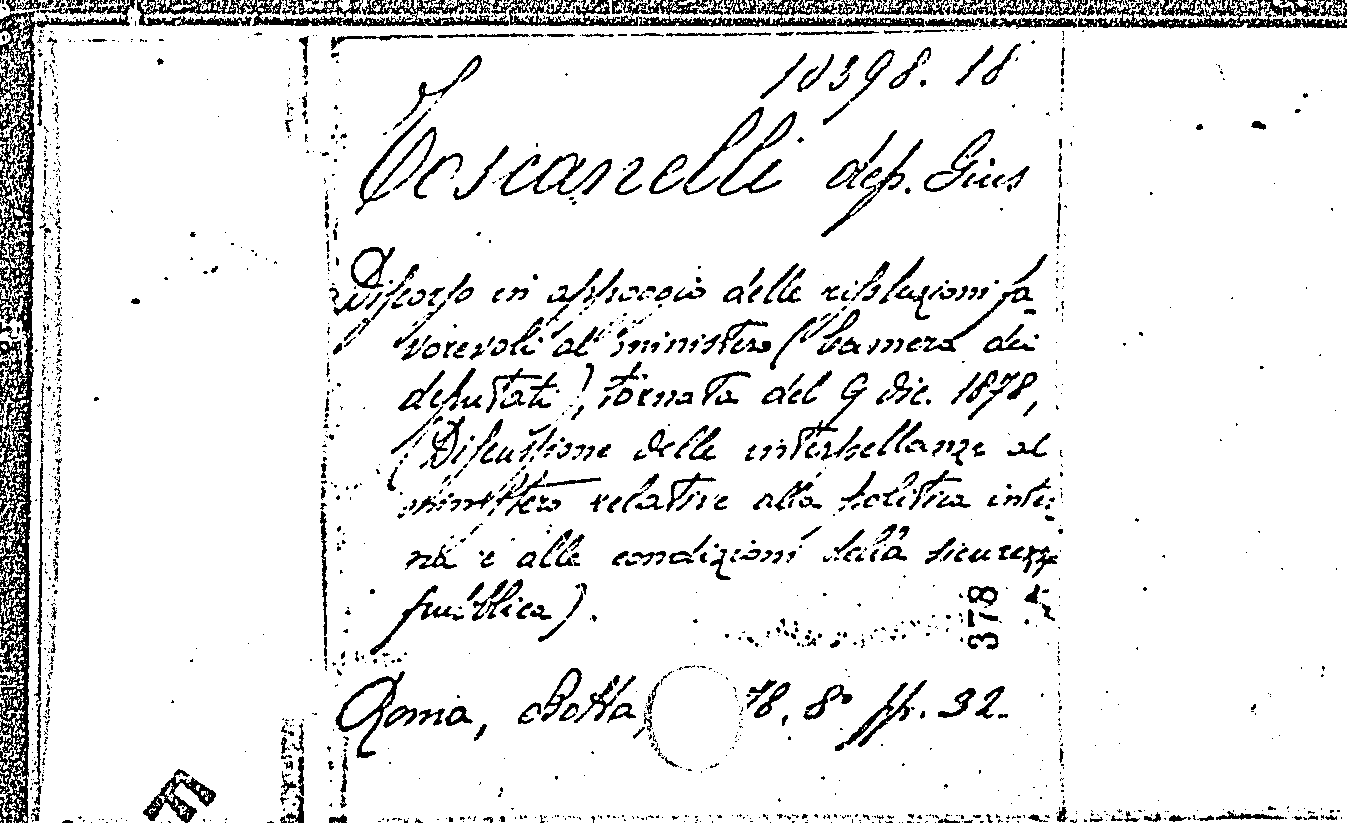 10398. 18
Toscanelli dep. Gius
Discorso in appoggio delle risoluzioni fa
vorevoli al ministero (Camera dei
deputati), tornata del 9 dic. 1878,
(Discussione delle interpellanze al
ministero relative alla politica inter
na e alle condizioni della sicurezza
pubblica).
378
Roma, Botta, 78, 8° pp. 32.